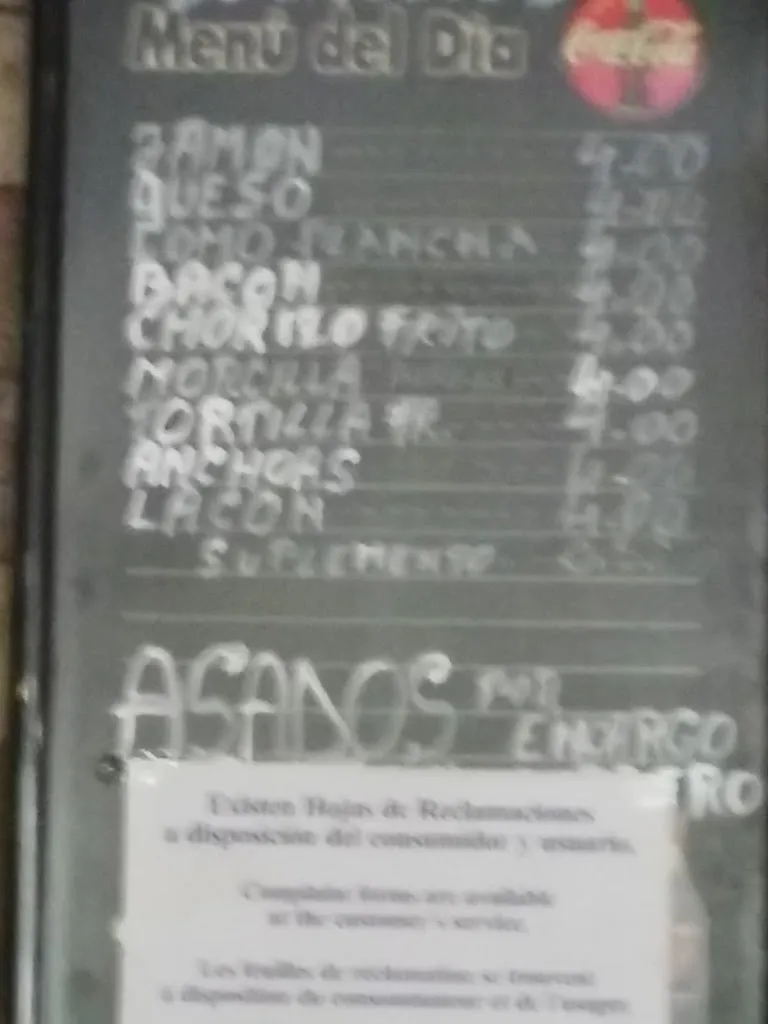 Menú del Día
Coca-Cola
JAMON 4.00
QUESO
LOMO PLANCHA 4.00
BACON 4.00
CHORIZO FRITO 4.00
MORCILLA 4.00
TORTILLA FR. 4.00
ANCHOAS
LACON
SUPLEMENTO
ASADOS POR
ENCARGO
Existen Hojas de Reclamaciones
a disposición del consumidor y usuario.
Complaint forms are available
at the customer's service.
Les feuilles de réclamation se trouvent
à disposition du consommateur et de l'usager.